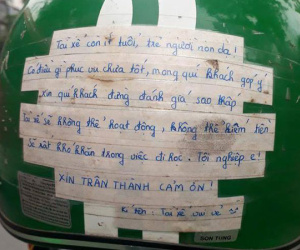 Tài xế còn ít tuổi, trẻ người non dạ!
Có điều gì phục vụ chưa tốt, mong quí khách góp ý.
Xin quí khách đừng đánh giá sao thấp
Tài xế sẽ không thể hoạt động, không thể kiếm tiền
Sẽ rất khó khăn trong việc đi học. Tội nghiệp e!
XIN TRÂN THÀNH CẢM ƠN!
Kí tên: Tài xế vui vẻ
SON TUNG